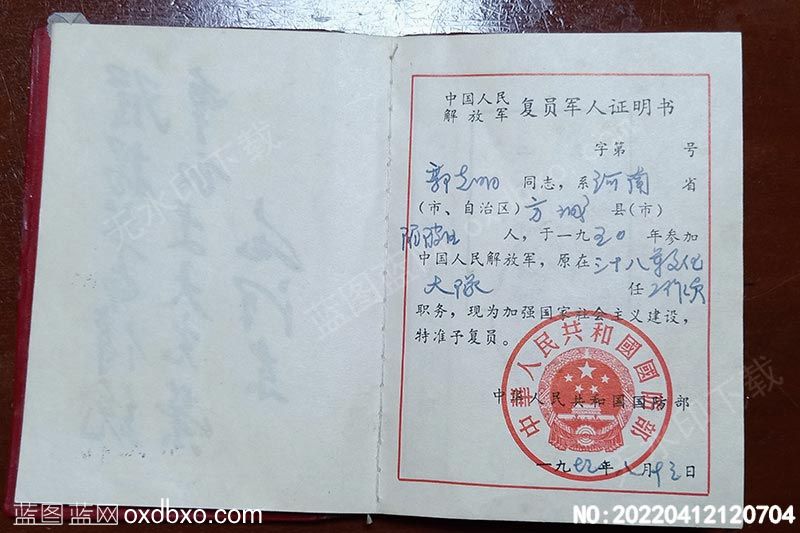 中国人民
解放军 复员军人证明书
字第 号
郭志明 同志，系 河南 省
（市、自治区） 方城 县（市）
人，于一九五〇年参加
中国人民解放军，原在三十八军文化
大队 任 工作员
职务，现为加强国家社会主义建设，
特准予复员。
中华人民共和国国防部
中华人民共和國國防部
一九 年 八月十三日
蓝图蓝网 oxdbxo.com
NO:20220412120704